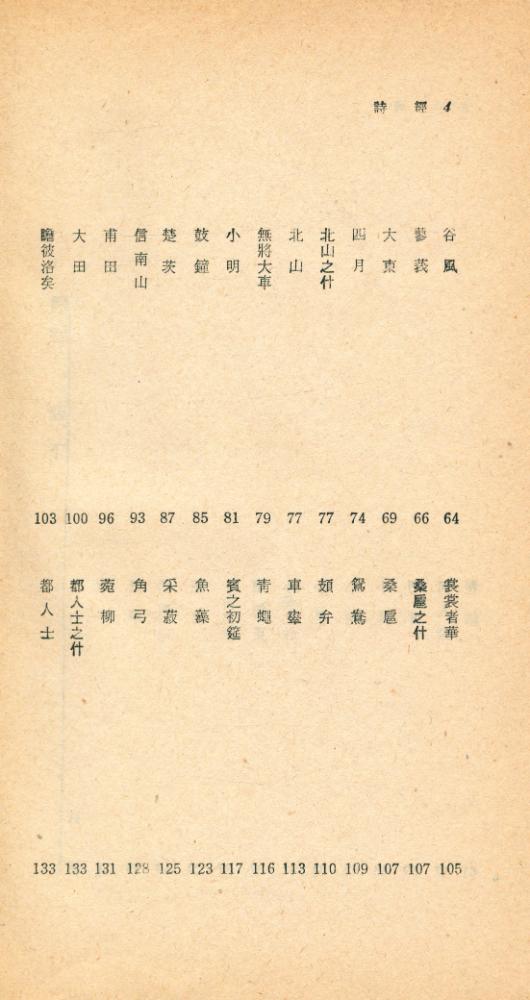 詩經 4
谷風 64
蓼莪 66
大東 69
四月 74
北山之什 77
北山 77
無將大車 79
小明 81
鼓鐘 85
楚茨 87
信南山 93
甫田 96
大田 100
瞻彼洛矣 103
裳裳者華 105
桑扈之什 107
桑扈 107
鴛鴦 109
頍弁 110
車舝 113
青蠅 116
賓之初筵 117
魚藻 123
采菽 125
角弓 128
菀柳 131
都人士之什 133
都人士 133